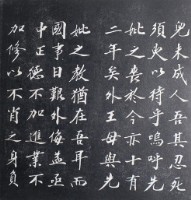 兒未成人吾其忍死
須臾以待乎嗚呼先
妣之喪於今亦十有
二年矣外王母與先
妣之教猶在吾耳而
國事日艱外侮益亟
中正德不加進業不
加修以不肖之身負